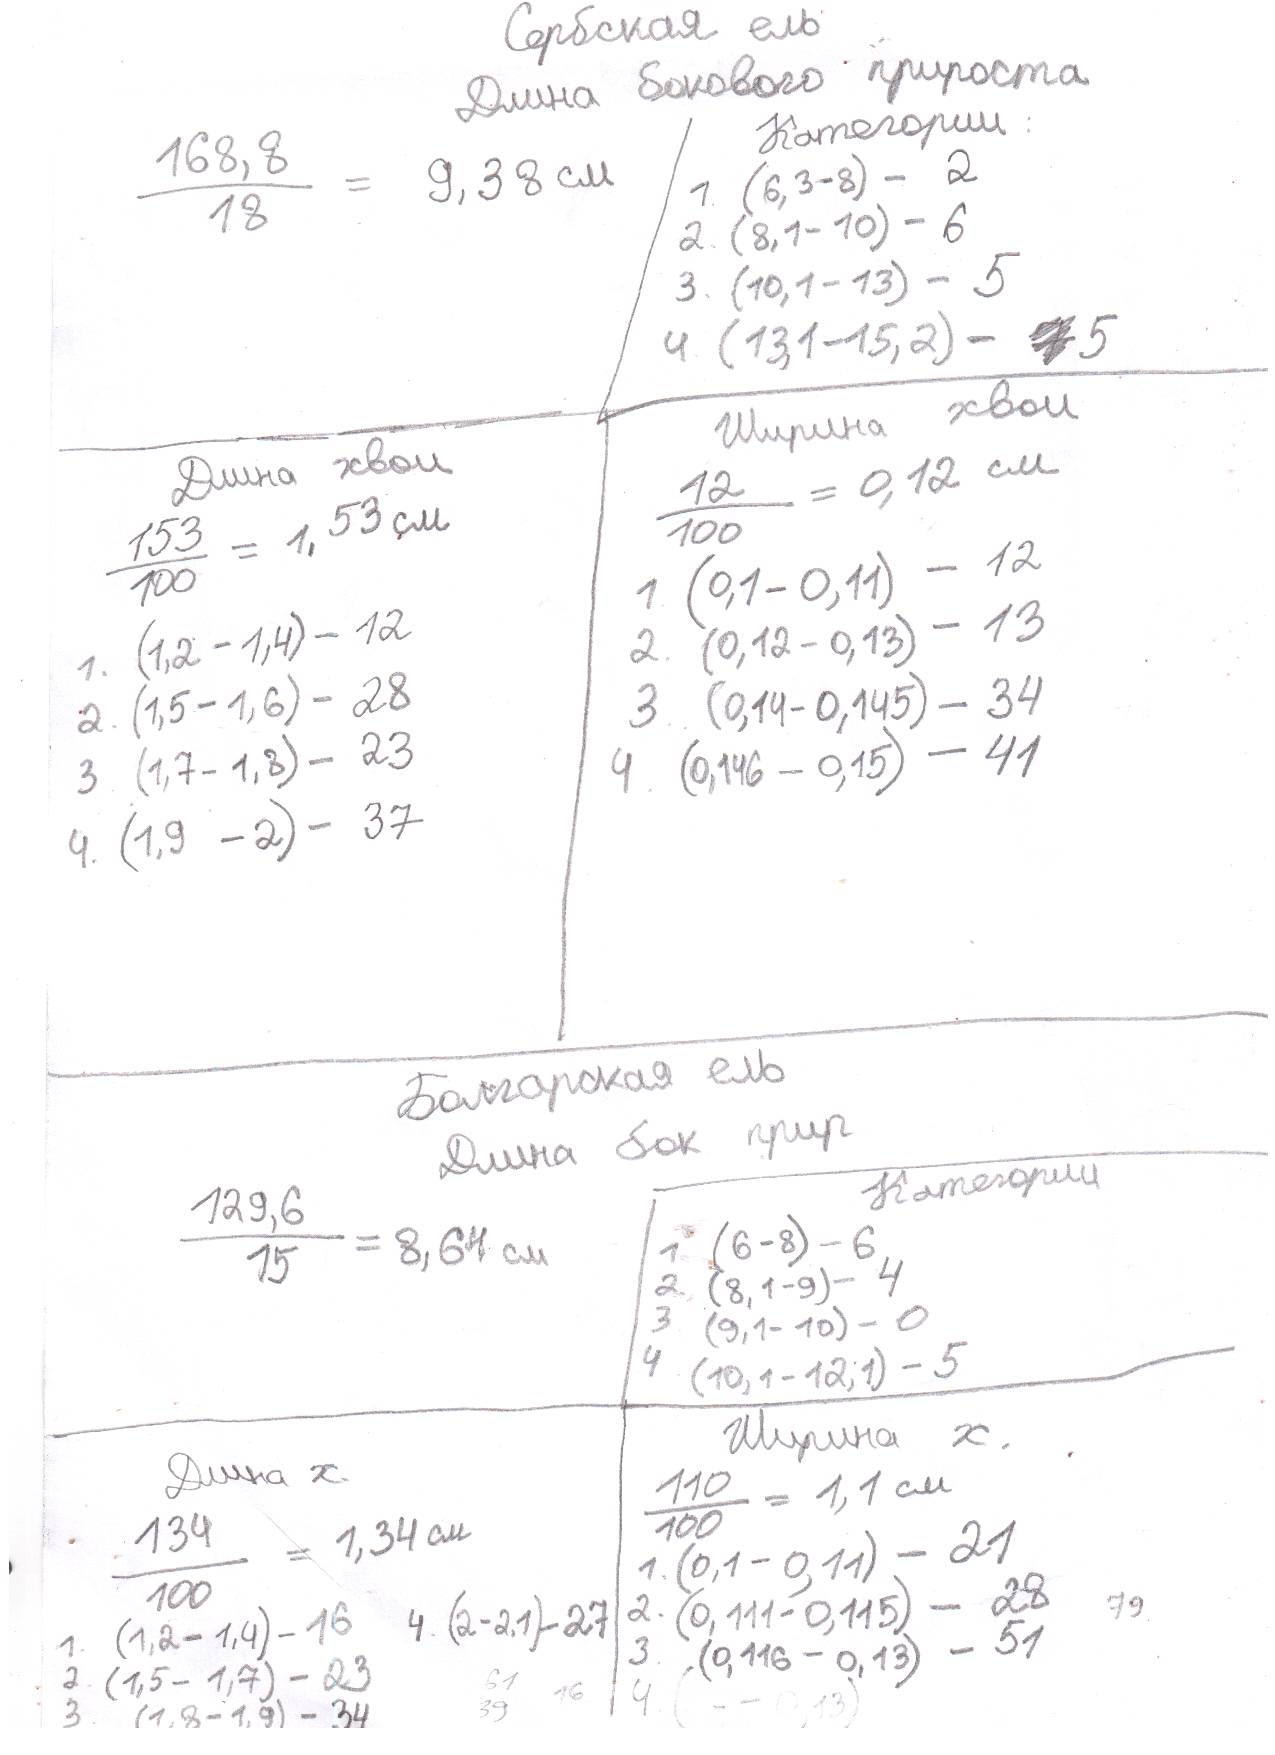 Сербская ель
Длина бокового прироста
168,8
18
= 9,38 см
Категории:
1. (6,3-8) - 2
2. (8,1-10) - 6
3. (10,1-13) - 5
4 (13,1-15,2) - 5
Длина хвои
153
100
= 1,53 см
1. (1,2-1,4) - 12
2. (1,5-1,6) - 28
3 (1,7-1,8) - 23
4. (1,9 -2) - 37
Ширина хвои
12
100
= 0,12 см
1. (0,1-0,11) - 12
2. (0,12-0,13) - 13
3. (0,14-0,145) - 34
4. (0,146-0,15) - 41
Болгарская ель
Длина бок прир
129,6
15
= 8,64 см
Категории
1 (6-8) - 6
2. (8,1-9) - 4
3 (9,1-10) - 0
4 (10,1-12,1) - 5
Длина х.
134
100
= 1,34 см
1. (1,2-1,4) - 16
2. (1,5-1,7) - 23
3. (1,8-1,9) - 34
4. (2-2,1) - 27
61
39
16
Ширина х.
110
100
= 1,1 см
1. (0,1-0,11) - 21
2. (0,111-0,115) - 28
79
3. (0,116-0,13) - 51
4. ( - - 0,13)